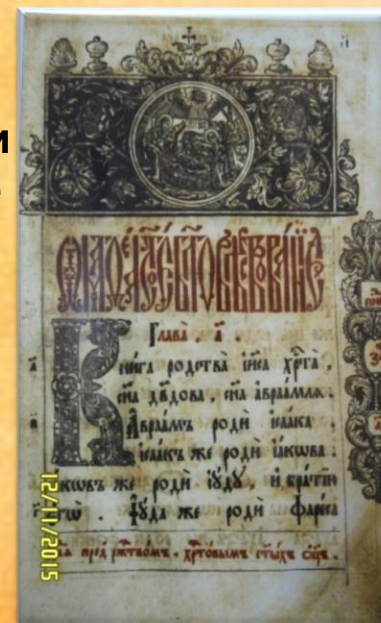 и
Глава̀ . а҃ .
Книга родства іи҃са хр҃та̀ ,
сн҃а дв҃дова , сн҃а авраамля .
Авраамъ роди ісаака .
ісаакъ же роди іакова .
іаковъ же роди іуду . и братїю
его̀ . Іуда же роди фареса
пред рж҃твомъ . хр҃товымъ ст҃ыхъ ѻц҃ъ .
12/11/2015